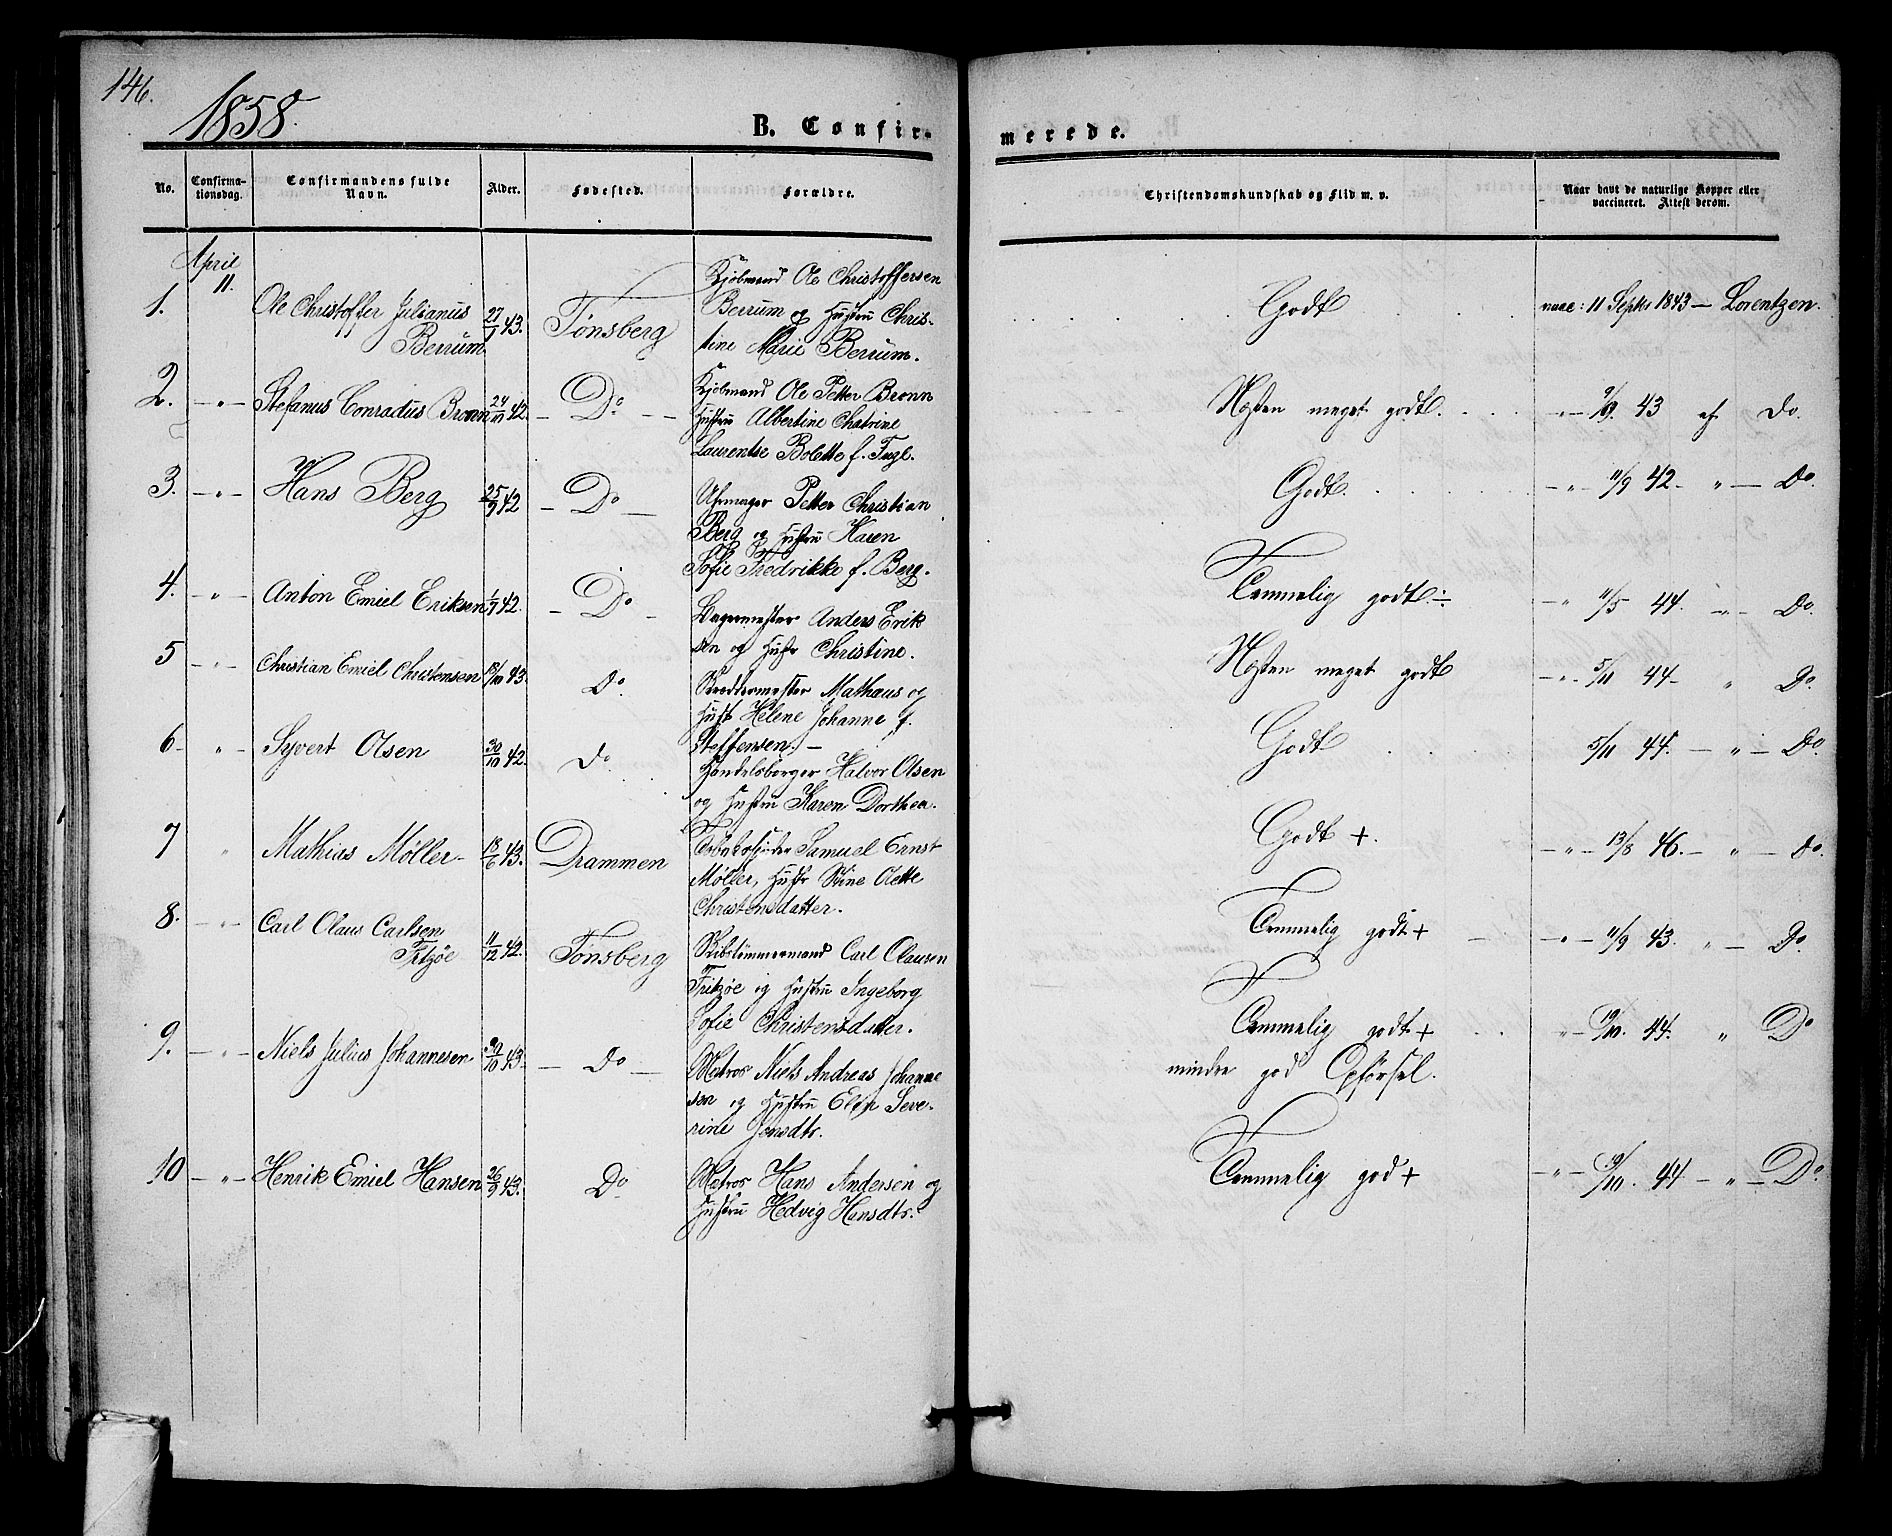 146.
1858.
B. Confir-
merede.
No.
Confirma-
tionsdag.
Confirmandens fulde
Navn.
Alder.
Fødested.
Forældre.
Christendomskundskab og Flid m. v.
Naar havt de naturlige Kopper eller
vaccineret. Attest derom.
April
11.
1. Ole Christoffer Julianus
Berrum
27/9 43. Tønsberg
Kjøbmand Ole Christoffersen
Berrum og Hustru Chris-
tine Marie Berrum.
Godt
vacc: 11 Septr 1843 – Lorentzen.
2. – „ – Stefanus Conradus Bronn 24/11 42. – Do –
Kjøbmand Ole Petter Bronn
Hustru Albertine Chatrine
Laurentse Bolette f. Fugl.
Næsten meget godt.
„ – 9/9. 43 af Do.
3. – „ – Hans Berg 25/9 42 – Do –
Uhrmager Petter Christian
Berg og Hustru Karen
Sofie Fredrikke f. Berg.
Godt.
– „ – 11/9 42 – „ – Do.
4. – „ – Anton Emiel Eriksen 1/7 42. – Do –
Anders Erik
sen og Hustr Christine.
Temmelig godt ÷
– „ 11/5 44. „ – Do.
5 – „ – Christian Emiel Christensen 18/10 43. Do.
Skreddermester Mathæus og
Hust Helene Johanne f.
Steffensen. –
Næsten meget godt
– „ – 5/11 44 – „ Do.
6 – „ – Syvert Olsen 30/10 42. Do
Handelsborger Halvor Olsen
og Hustru Karen Dorthea.
Godt
5/11 44. – „ – Do
7 „ Mathias Møller – 18/6 43. Drammen
Samuel Ernst
Møller, Hustr Stine Olette
Christensdatter.
Godt +.
– „ – 13/8 46. – „ – Do.
8. – „ – Carl Olaus Carlsen
Fritzøe
11/12 42. Tønsberg
Skibstømmermand Carl Olausen
Fritzøe og Hustru Ingeborg
Sofie Christensdatter.
Temmelig godt +
– „ – 11/9 43. „ – Do.
9. – „ – Niels Julius Johannesen 30/10 43 – – Do –
Matros Niels Andreas Johanne
sen og Hustru Seve-
rine Jensdtr.
Temmelig godt +
mindre god Opførsel.
„ – 19/10. 44. „ Do
10 – „ – Henrik Emiel Hansen 26/9 43. Do.
Matros Hans Andersen og
Hustru Hedvig Hansdtr.
Temmelig god +
– „ – 19/10. 44 – „ – Do.